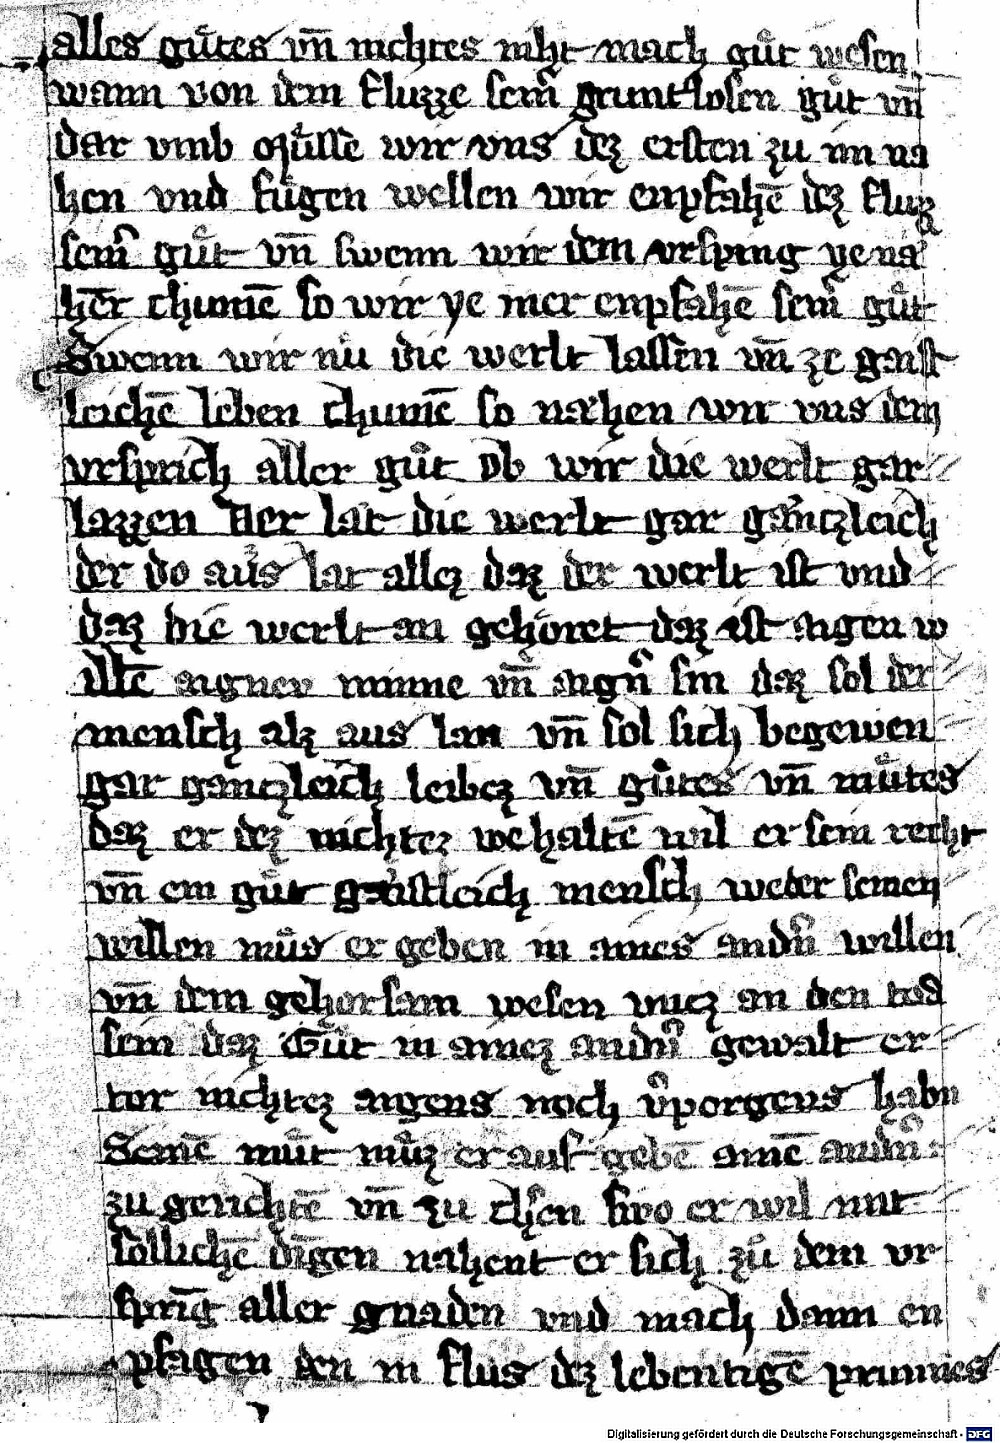 alles guͤtes vn̄ nichtes niht mach guͤt wesen
wann von dem fluzze sein̄ gruntlosen guͤt vn̄
dar vmb muͤsse wir vns dez ersten zu im na
hen vnd fuͤgen wellen wir enpfahē dez fluz
sein̄ guͤt vn̄ swenn wir dem vrspring ye na
her chumē so wir ye mer enpfahē sein̄ guͤt
Swenn wir nuͤ die werlt lassen vn̄ ze gaist
leichē leben chumē so næhen wir vns dem
vrsprich aller guͤt Ob wir die werlt gar
lazzen Der lat die werlt gar gantzleich
der do auͤs lat allez daz der werlt ist vnd
daz die werlt an gehoͤret daz ist aigen w
illē aigner minne vn̄ aign̄ sin daz sol der
mensch alz aus lan vn̄ sol sich begewen
gar gantzleich leibez vn̄ guͤtes vn̄ muͤtes
daz er dez nichtez wehaltē wil er sein recht
vn̄ ein guͤt gaistleich mensch weder seinen
willen muͤs er geben in aines andn̄ willen
vn̄ dem gehorsam wesen vntz an den tod
sein daz Guͤt in ainez andn̄ gewalt er
tor nichtez aigens noch v̄porgens habn
Seinē muͤt muͤz er auf gebē ainē andn̄
zu gerichtē vn̄ zu chern swo er wil mit
sollichē dīgen nahent er sich zuͤ dem vr
sprīg aller gnaden vnd mach dann en
pfagen den in flus dez lebentigē prunnes
Digitalisierung gefördert durch die Deutsche Forschungsgemeinschaft - DFG